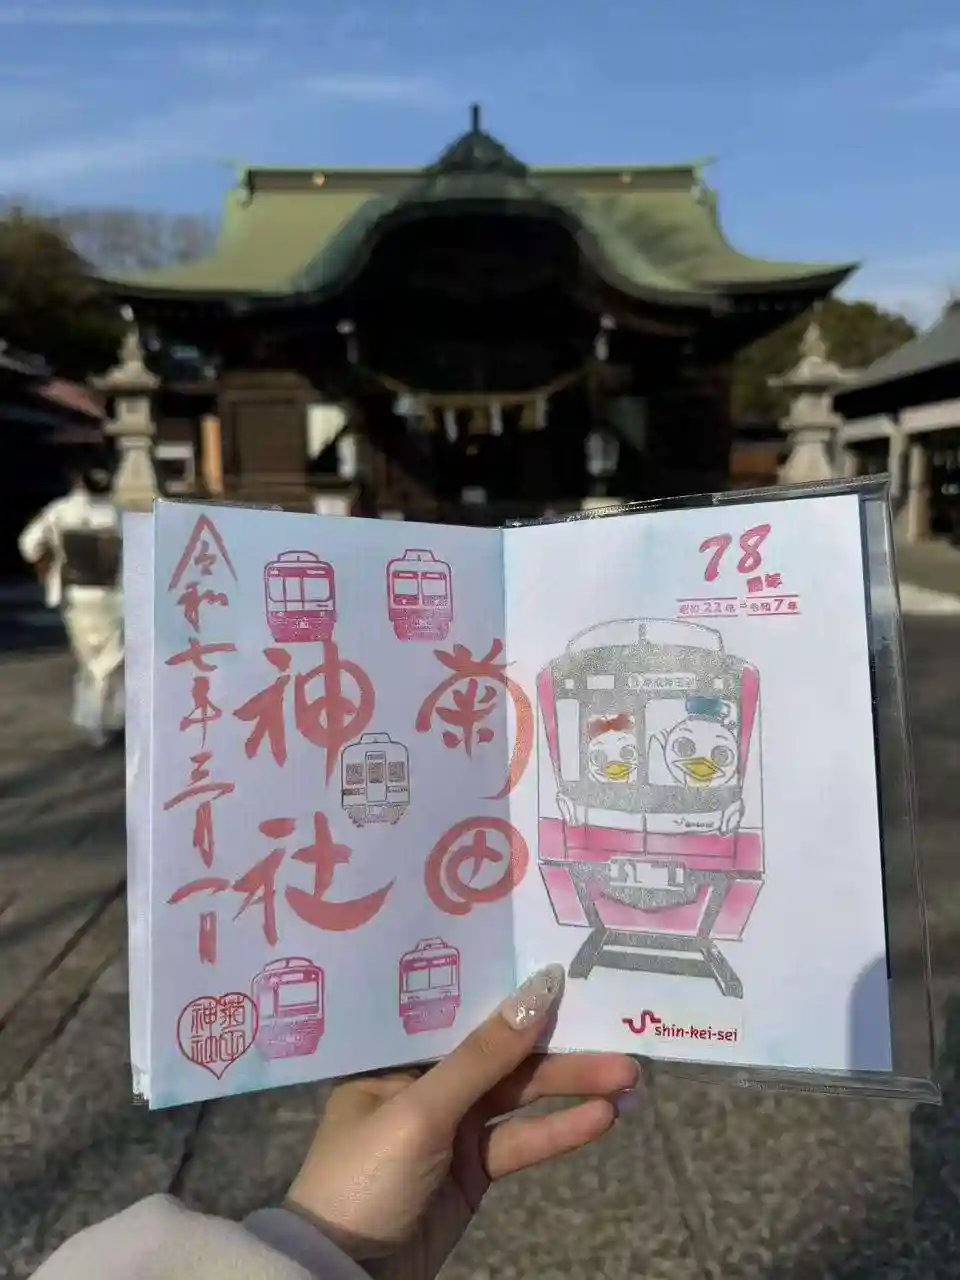 78
周年
昭和22年⇒令和7年
shin-kei-sei
菊田
神社
令和七年三月一日
菊田
神社